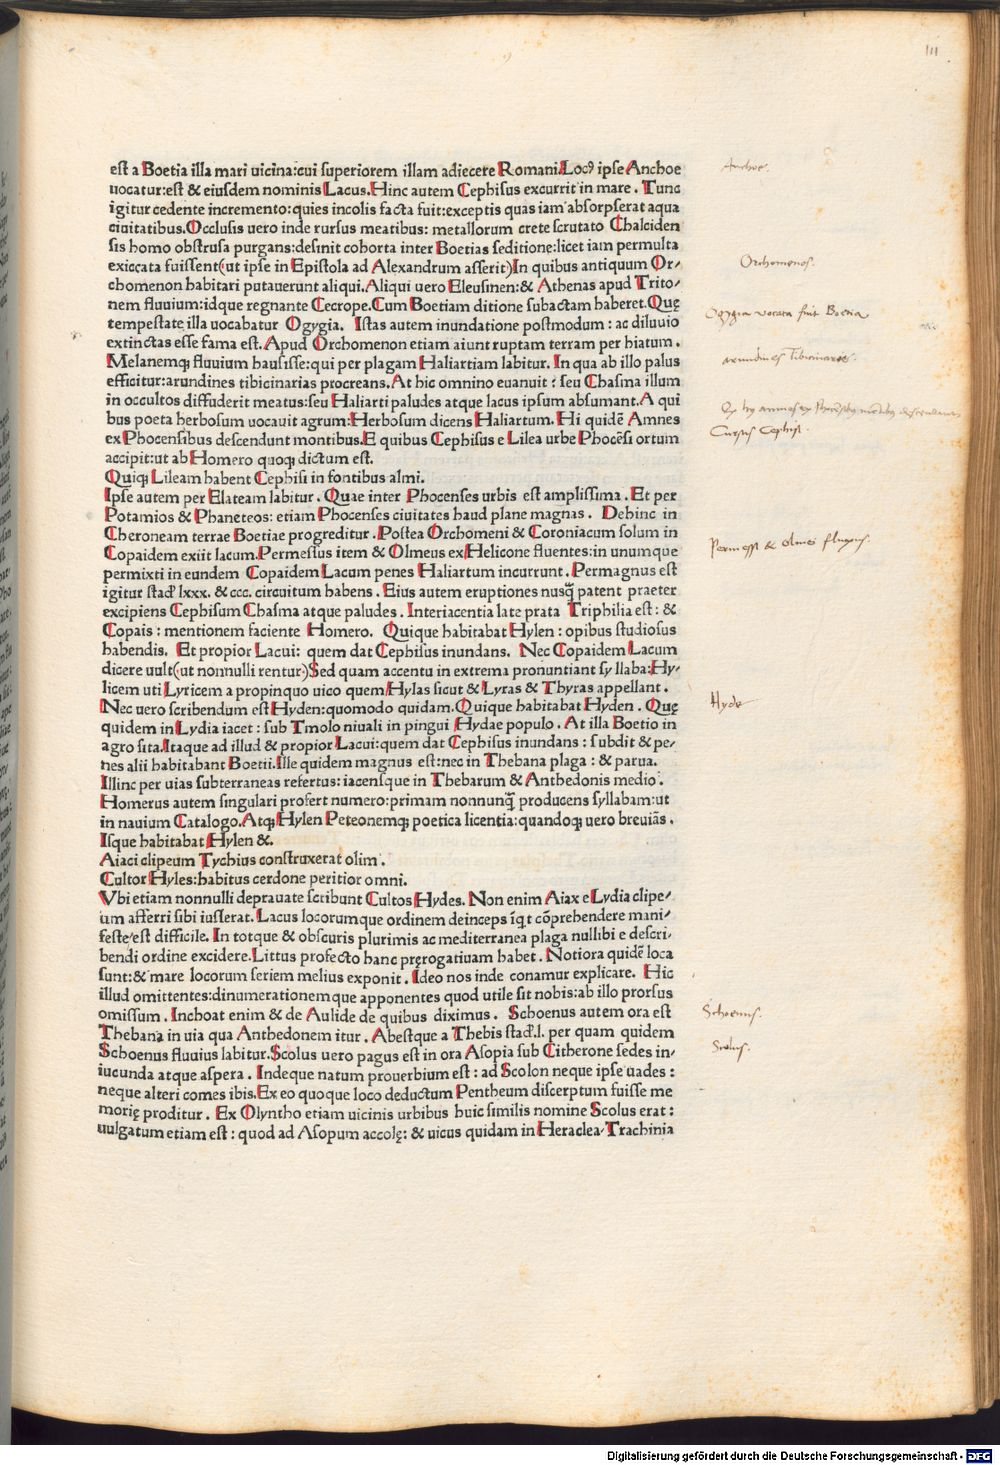 III
est a Boetia illa mari uicina:cui superiorem illam adiecere Romani.Locꝰ ipse Anchoe
uocatur:est & eiusdem nominis Lacus.Hinc autem Cephisus excurrit in mare. Tunc
igitur cedente incremento:quies incolis facta fuit:exceptis quas iam absorpserat aqua
ciuitatibus.Occlusis uero inde rursus meatibus: metallorum crete scrutato Chalciden
sis homo obstrusa purgans:desinit cohorta inter Boetias seditione:licet iam permulta
exiccata fuissent(ut ipse in Epistola ad Alexandrum asserit)In quibus antiquum Or/
chomenon habitari putauerunt aliqui.Aliqui uero Eleusinen:& Athenas apud Trito/
nem fluuium:idque regnante Cecrope.Cum Boetiam ditione subactam haberet.Quę
tempestate illa uocabatur Ogygia. Istas autem inundatione postmodum: ac diluuio
extinctas esse fama est.Apud Orchomenon etiam aiunt ruptam terram per hiatum.
Melanemqꝫ fluuium hausisse:qui per plagam Haliartiam labitur. In qua ab illo palus
efficitur:arundines tibicinarias procreans.At hic omnino euanuit: seu Chasma illum
in occultos diffuderit meatus:seu Haliarti paludes atque lacus ipsum absumant.A qui
bus poeta herbosum uocauit agrum:Herbosum dicens Haliartum. Hi quidē Amnes
ex Phocensibus descendunt montibus.E quibus Cephisus e Lilea urbe Phocēsi ortum
accipit:ut ab Homero quoqꝫ dictum est.
Quiqꝫ Lileam habent Cephisi in fontibus almi.
Ipse autem per Elateam labitur. Quae inter Phocenses urbis est amplissima. Et per
Potamios & Phaneteos: etiam Phocenses ciuitates haud plane magnas. Debinc in
Cheroneam terrae Boetiae progreditur. Postea Orchomeni & Coroniacum solum in
Copaidem exiit lacum.Permestus item & Olmeus ex Helicone fluentes:in unumque
permixti in eundem Copaidem Lacum penes Haliartum incurrunt. Permagnus est
igitur stad lxxx. & ccc. circuitum habens. Eius autem eruptiones nusq̄ patent praeter
excipiens Cephisum Chasma atque paludes. Interiacentia late prata Triphilia est: &
Copais: mentionem faciente Homero. Quique habitabat Hylen: opibus studiosus
habendis. Et propior Lacui: quem dat Cephisus inundans. Nec Copaidem Lacum
dicere uult(ut nonnulli rentur)Sed quam accentu in extrema pronuntiant syllaba:Hy/
licem uti Lyricem a propinquo uico quem Hylas sicut & Lyras & Thyras appellant.
Nec uero scribendum est Hyden:quomodo quidam.Quique habitabat Hyden. Quę
quidem in Lydia iacet: sub Tmolo niuali in pingui Hydae populo. At illa Boetio in
agro sita.Itaque ad illud & propior Lacui:quem dat Cephisus inundans: subdit & pe/
nes alii habitabant Boetii.Ille quidem magnus est:nec in Thebana plaga: & parua.
Illinc per uias subterraneas refertus: iacensque in Thebarum & Anthedonis medio.
Homerus autem singulari profert numero:primam nonnunq̄ producens syllabam:ut
in nauium Catalogo.Atqꝫ Hylen Peteonemqꝫ poetica licentia:quandoqꝫ uero breuiās.
Isque habitabat Hylen &.
Aiaci clipeum Tychius construxerat olim.
Cultor Hyles:habitus cerdone peritior omni.
Vbi etiam nonnulli deprauate scribunt Cultos Hydes. Non enim Aiax e Lydia clipe/
um afferri sibi iusserat. Lacus locorumque ordinem deinceps īqt cōprehendere mani/
feste/est difficile. In totque & obscuris plurimis ac mediterranea plaga nullibi e descri/
bendi ordine excidere.Littus profecto hanc pręrogatiuam habet. Notiora quidē loca
sunt:& mare locorum seriem melius exponit. Ideo nos inde conamur explicare. Hic
illud omittentes:dinumerationemque apponentes quod utile sit nobis:ab illo prorsus
omissum. Inchoat enim & de Aulide de quibus diximus. Schoenus autem ora est
Thebana in uia qua Anthedonem itur. Abestque a Thebis stad.l. per quam quidem
Schoenus fluuius labitur.Scolus uero pagus est in ora Asopia sub Citherone sedes in/
iucunda atque aspera. Indeque natum prouerbium est: ad Scolon neque ipse uades:
neque alteri comes ibis.Ex eo quoque loco deductum Pentheum discerptum fuisse me
morię proditur. Ex Olyntho etiam uicinis urbibus huic similis nomine Scolus erat:
uulgatum etiam est: quod ad Asopum accolę: & uicus quidam in Heraclea/Trachinia
Anchoe.
Orchomenos.
Ogygia vocata fuit Boetia
arundines Tibicinarie.
Cursus Cephisi.
Permessi & olmei fluuius.
Hyde
Schoenus.
Scolus.
Digitalisierung gefördert durch die Deutsche Forschungsgemeinschaft - DFG